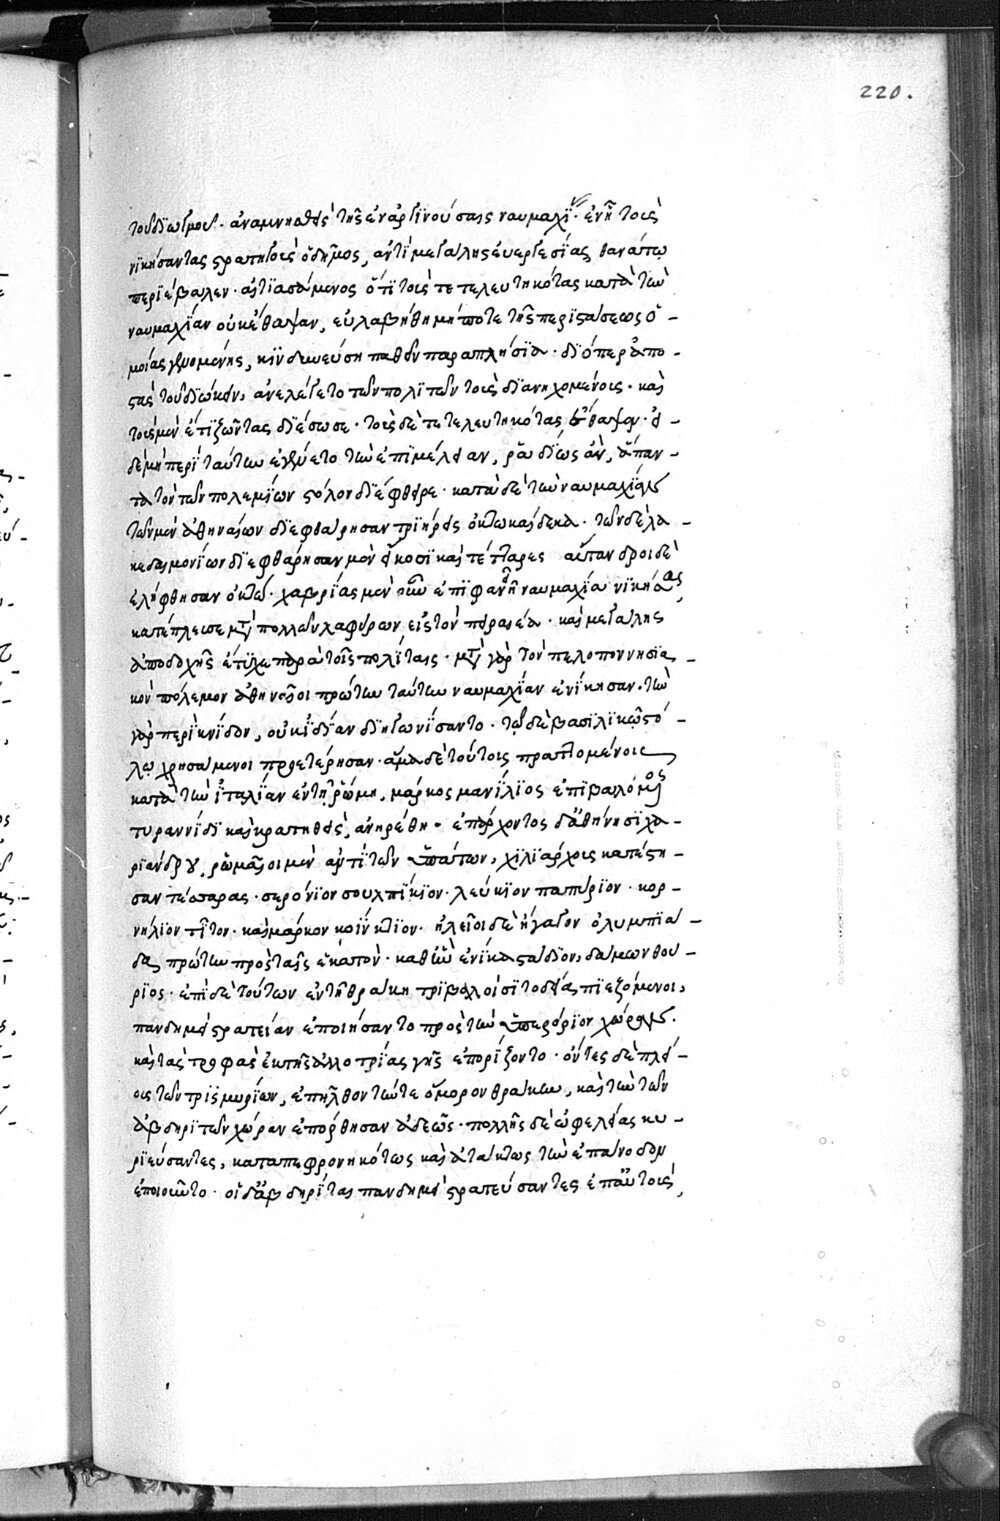 220.
τοῦ διωγμοῦ· ἀναμνησθεὶς τῆς ἐν ἀργινούσαις ναυμαχί· ἐν ᾗ τοὺς
νικήσαντας στρατηγοὺς ὁ δῆμος, ἀντὶ μεγάλης εὐεργεσίας θανάτῳ
περιέβαλεν· αἰτιασάμενος ὅτι τοὺς τετελευτηκότας κατὰ τὴν
ναυμαχίαν οὐκ ἔθαψαν, εὐλαβήθη μήποτε τῆς περιστάσεως ὁ-
μοίας γενομένης, κινδυνεύσῃ παθεῖν παραπλήσια· διόπερ ἀπο-
στὰς τοῦ διώκειν, ἀνελέγετο τῶν πολιτῶν τοὺς διανηχομένοις· καὶ
τοὺς μὲν ἔτι ζῶντας διέσωσε· τοὺς δὲ τετελευτηκότας ἔθαψεν· εἰ
δὲ μὴ περὶ ταύτην ἐγένετο τὴν ἐπιμέλειαν, ῥᾳδίως ἂν, ἅπαν-
τα τὸν τῶν πολεμίων στόλον διέφθειρε· κατὰ δὲ τὴν ναυμαχίαν
τῶν μὲν ἀθηναίων διεφθάρησαν τριήρεις ὀκτωκαίδεκα· τῶν δὲ λα-
κεδαιμονίων διεφθάρησαν μὲν εἴκοσι καὶ τέτταρες αὔτανδροι δὲ
ἐλήφθησαν ὀκτώ· χαβρίας μὲν οὖν ἐπιφανῆ ναυμαχία νικήσας,
κατέπλευσε μετὰ πολλῶν λαφύρων εἰς τὸν πειραιέα· καὶ μεγάλης
ἀποδοχῆς ἔτυχε παρὰ τοῖς πολίταις· μετὰ γὰρ τὸν πελοποννησια-
κὸν πόλεμον ἀθηναῖοι πρώτην ταύτην ναυμαχίαν ἐνίκησαν· τὴν
γὰρ περὶ κνίδον, οὐκ ἰδίαν διηγωνίσαντο· τῷ δὲ βασιλικῷ στό-
λῳ χρησάμενοι προετέρησαν· ἅμα δὲ τούτοις πραττομένοις
κατὰ τὴν ἰταλίαν ἐν τῇ ῥώμῃ, μάρκος μανίλιος ἐπιβαλόμενος
τυραννίδι καὶ κρατηθεὶς, ἀνῃρέθη· ἐπ' ἄρχοντος δ' ἀθήνησι χα-
ριάνδρου, ῥωμαῖοι μὲν ἀντὶ τῶν ὑπάτων, χιλιάρχις κατέστη-
σαν τέσσαρας· σερούϊον σουλπίκιον· λεύκιον παπίριον· κορ-
νήλιον τίτον· καὶ μάρκον κοίνκτιον· ἠλεῖοι δὲ ἤγαγον ὀλυμπιά-
δα πρώτην πρὸς ταῖς ἑκατόν· καθ' ἣν ἐνίκα στάδιον, δάμων θού-
ριος· ἐπὶ δὲ τούτων ἐν τῇ θράκῃ τριβαλλοὶ σιτοδείᾳ πιεζόμενοι,
πανδημεὶ στρατείαν ἐποιήσαντο πρὸς τὴν ὑπερόριον χώραν·
καὶ τὰς τροφὰς ἐκ τῆς ἀλλοτρίας γῆς ἐπορίζοντο· ὄντες δὲ πλεί-
ους τῶν τρισμυρίων, ἐπῆλθον τήν τε ὅμορον θράκην, καὶ τὴν τῶν
ἀβδηριτῶν χώραν ἐπόρθησαν ἀδεῶς· πολλῆς δὲ ὠφελείας κυ-
ριεύσαντες, καταπεφρονηκότως καὶ ἀτάκτως τὴν ἐπάνοδον
ἐποιοῦντο· οἱ δ' ἀβδηρῖται πανδημεὶ στρατεύσαντες ἐπ' αὐτοὺς,